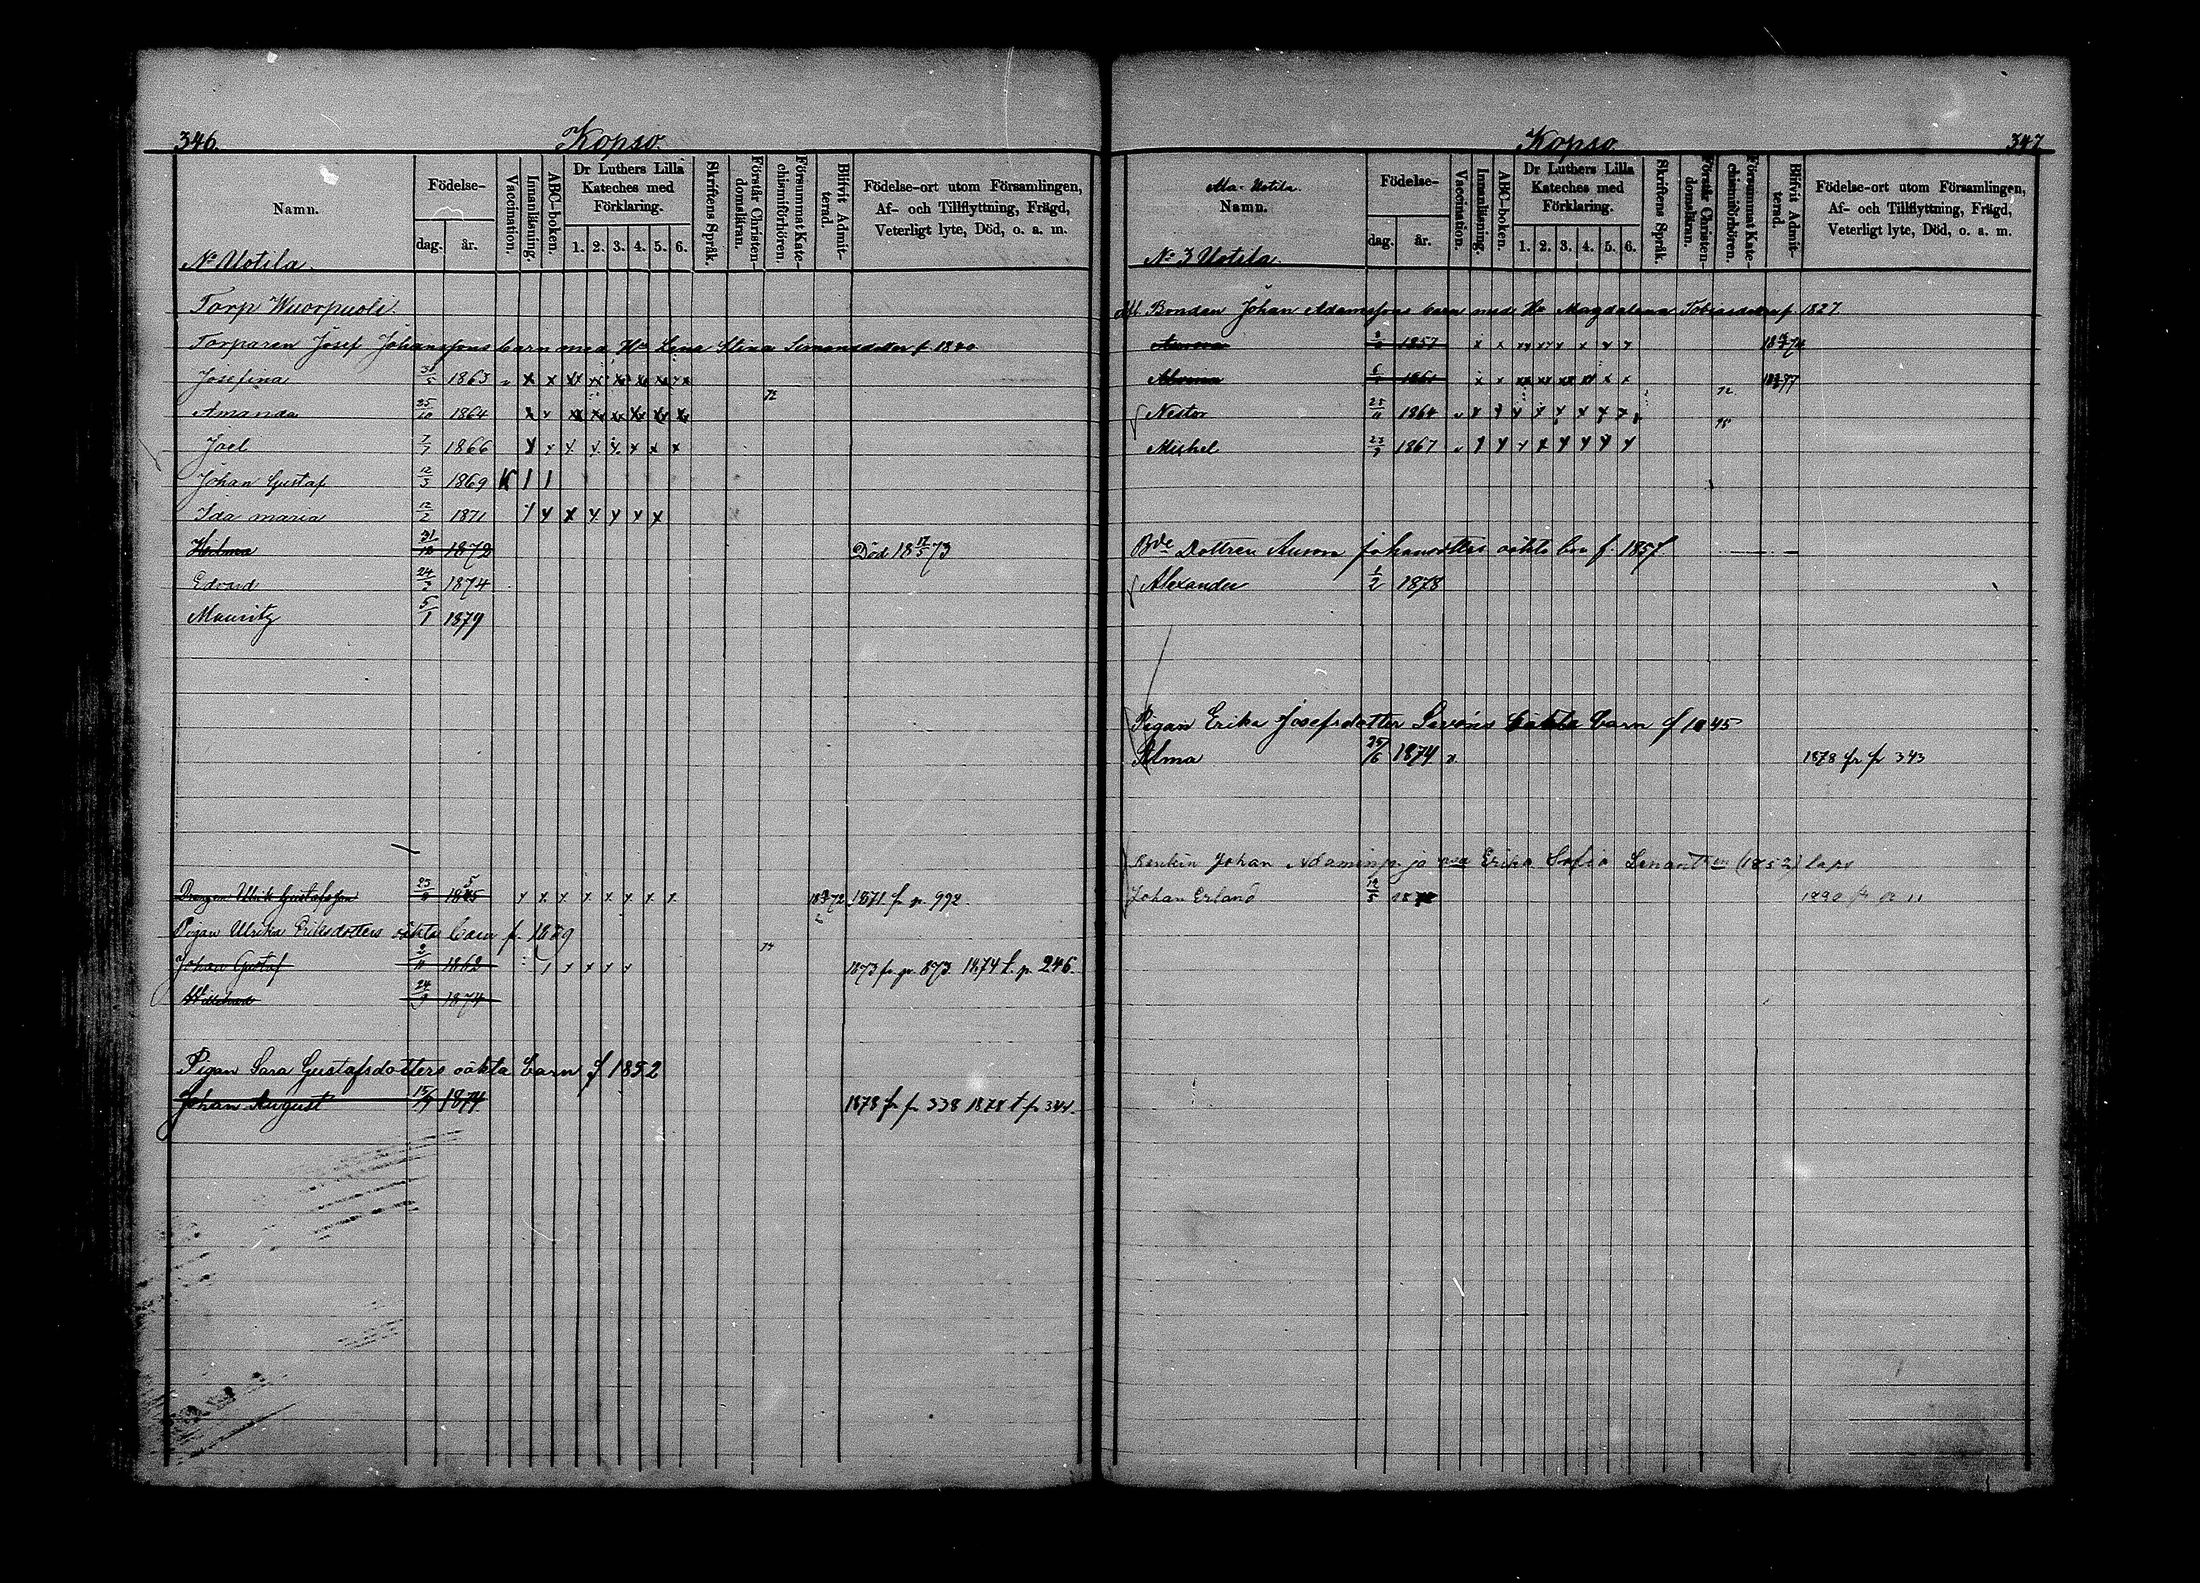 346.
Kopso.
Namn.
Födelse-
dag.
år.
Vaccination.
Innanläsning.
ABC-boken.
Dr Luthers Lilla Kateches med Förklaring.
1. 2. 3. 4. 5. 6.
Skriftens Språk.
Förstår Christen-domsläran.
Försummat Kate-chismiförhören.
Blifvit Admit-terad.
Födelse-ort utom Församlingen, Af- och Tillflyttning, Frägd, Veterligt lyte, Död, o. a. m.
No Uotila.
Torp Wuorpuoli.
Torparen Josef Johanssons barn med Hu Lena Stina Simonsdotter f. 1840
Josefina 31/5 1863 x x xx xx xx xx xx x x
Amanda 25/10 1864 x x xx xx xx xx xx xx 72
Joel 7/7 1866 x x x x x x x x
Johan Gustaf 12/3 1869 K 1 1
Ida Maria 12/2 1871 x x x x x x x
Hilma 31/12 1872 Död 18 17/5 73
Edvard 24/2 1874
Mauritz 5/1 1879
Drängen Ulrik Gustafsson 1855 x x x x x x x x 1871 f. p. 992.
Pigan Ulrika Eriksdotters oäkta barn f. 1829
Johan Gustaf 2/11 1862 x x x x 74 1873 fr. p. 873. 1874 t. p. 246.
24/9 1874
Pigan Sara Gustafsdotters oäkta barn f 1852
Johan August 15/9 1874 1878 fr p 338 1878 t p 344.
Kopso
347
Ala-Uotila.
Namn.
Födelse-
dag.
år.
Vaccination.
Innanläsning.
ABC-boken.
Dr Luthers Lilla Kateches med Förklaring.
1. 2. 3. 4. 5. 6.
Skriftens Språk.
Förstår Christen-domsläran.
Försummat Kate-chismiförhören.
Blifvit Admit-terad.
Födelse-ort utom Församlingen, Af- och Tillflyttning, Frägd, Veterligt lyte, Död, o. a. m.
No 3 Uotila.
Bonden Johan Adamssons barn med Hu Magdalena Tobiasdotter f 1827
Aurora 1857 x x xx xx x x x x
1861 x x xx xx xx xx x x
Nestor 25/11 1864 x x x x x x x x 72
Mishel 23/9 1867 x x x x x x x x 78
Bde Dottren Aurora Johansdotters oäkta bn f. 1857
Alexander 1/2 1878
Pigan Erika Josefsdotter Savéns oäkta barn f 1845
Alma 25/6 1874 x 1878 fr p 343
Johan Adaminp. ja Erika Sofia (1852) laps
Johan Erland 12/5